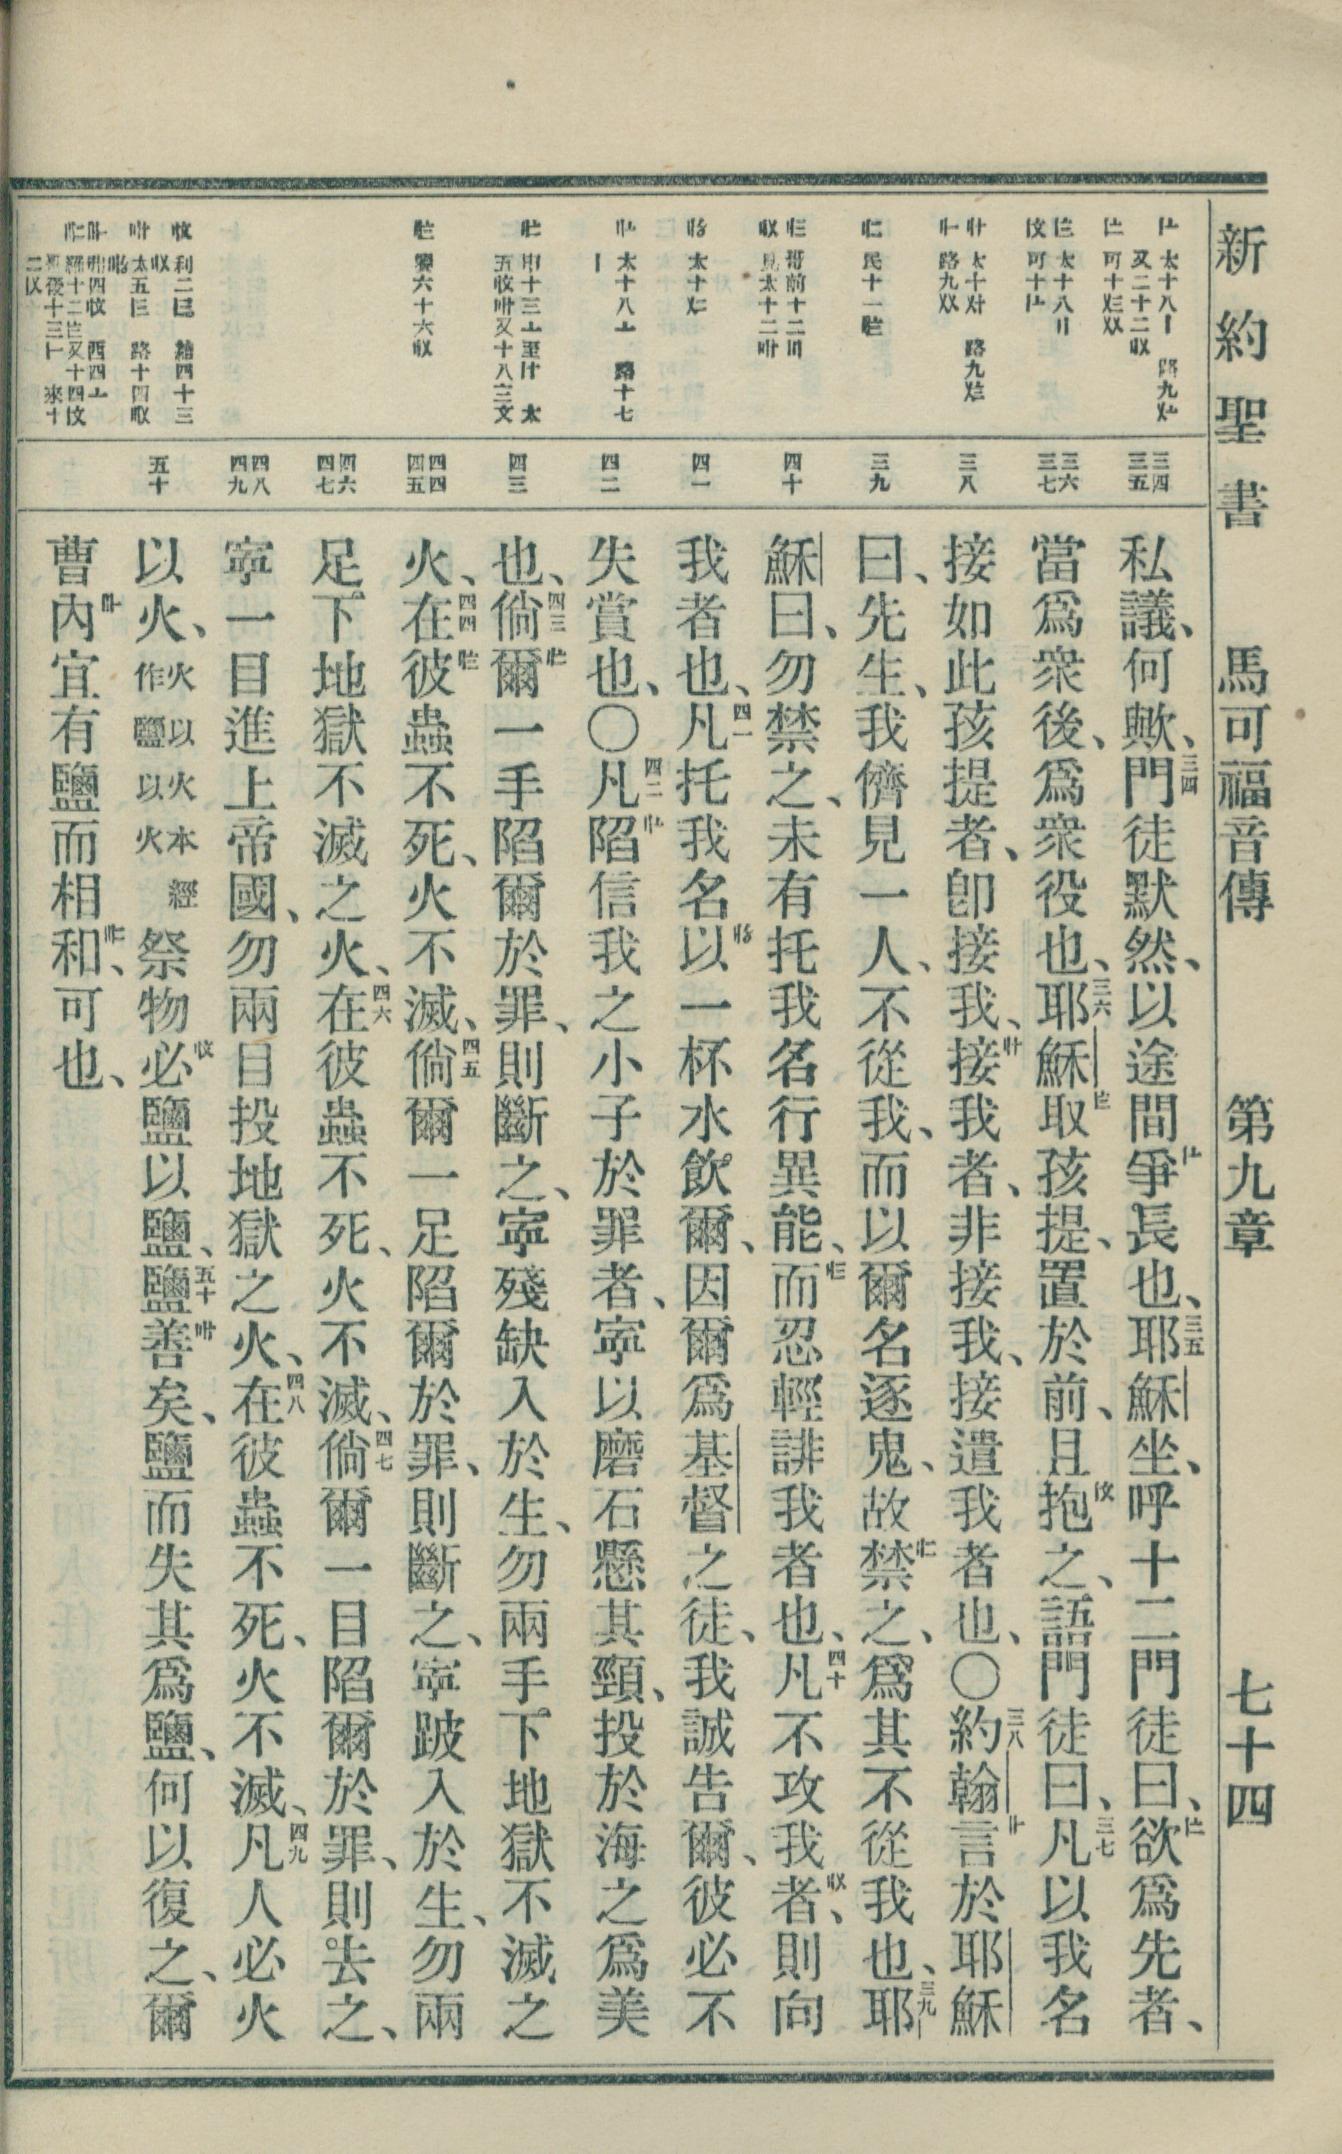 新約聖書 馬可福音傳 第九章 七十四
三四 三五
三六 三七
三八
三九
四十
四一
四二
四三
四四 四五
四六 四七
四八 四九
五十
私議、何歟、三四門徒默然、以途間爭長也、三五耶穌坐、呼十二門徒曰、欲爲先者、
當爲衆後、爲衆役也、三六耶穌取孩提、置於前、且抱之、語門徒曰、三七凡以我名
接如此孩提者、卽接我、接我者、非接我、接遣我者也、〇三八約翰言於耶穌
曰、先生、我儕見一人、不從我、而以爾名逐鬼、故禁之、爲其不從我也、三九耶
穌曰、勿禁之、未有托我名行異能、而忍輕誹我者也、四十凡不攻我者、則向
我者也、四一凡托我名以一杯水飲爾、因爾爲基督之徒、我誠告爾、彼必不
失賞也、〇四二凡陷信我之小子於罪者、寧以磨石懸其頸、投於海之爲美
也、四三倘爾一手陷爾於罪、則斷之、寧殘缺入於生、勿兩手下地獄不滅之
火、四四在彼蟲不死、火不滅、四五倘爾一足陷爾於罪、則斷之、寧跛入於生、勿兩
足下地獄不滅之火、四六在彼蟲不死、火不滅、四七倘爾一目陷爾於罪、則去之、
寧一目進上帝國、勿兩目投地獄之火、四八在彼蟲不死、火不滅、四九凡人必火
以火、火以火本經作鹽以火祭物必鹽以鹽、五十鹽善矣、鹽而失其爲鹽、何以復之、爾
曹內宜有鹽而相和、可也、